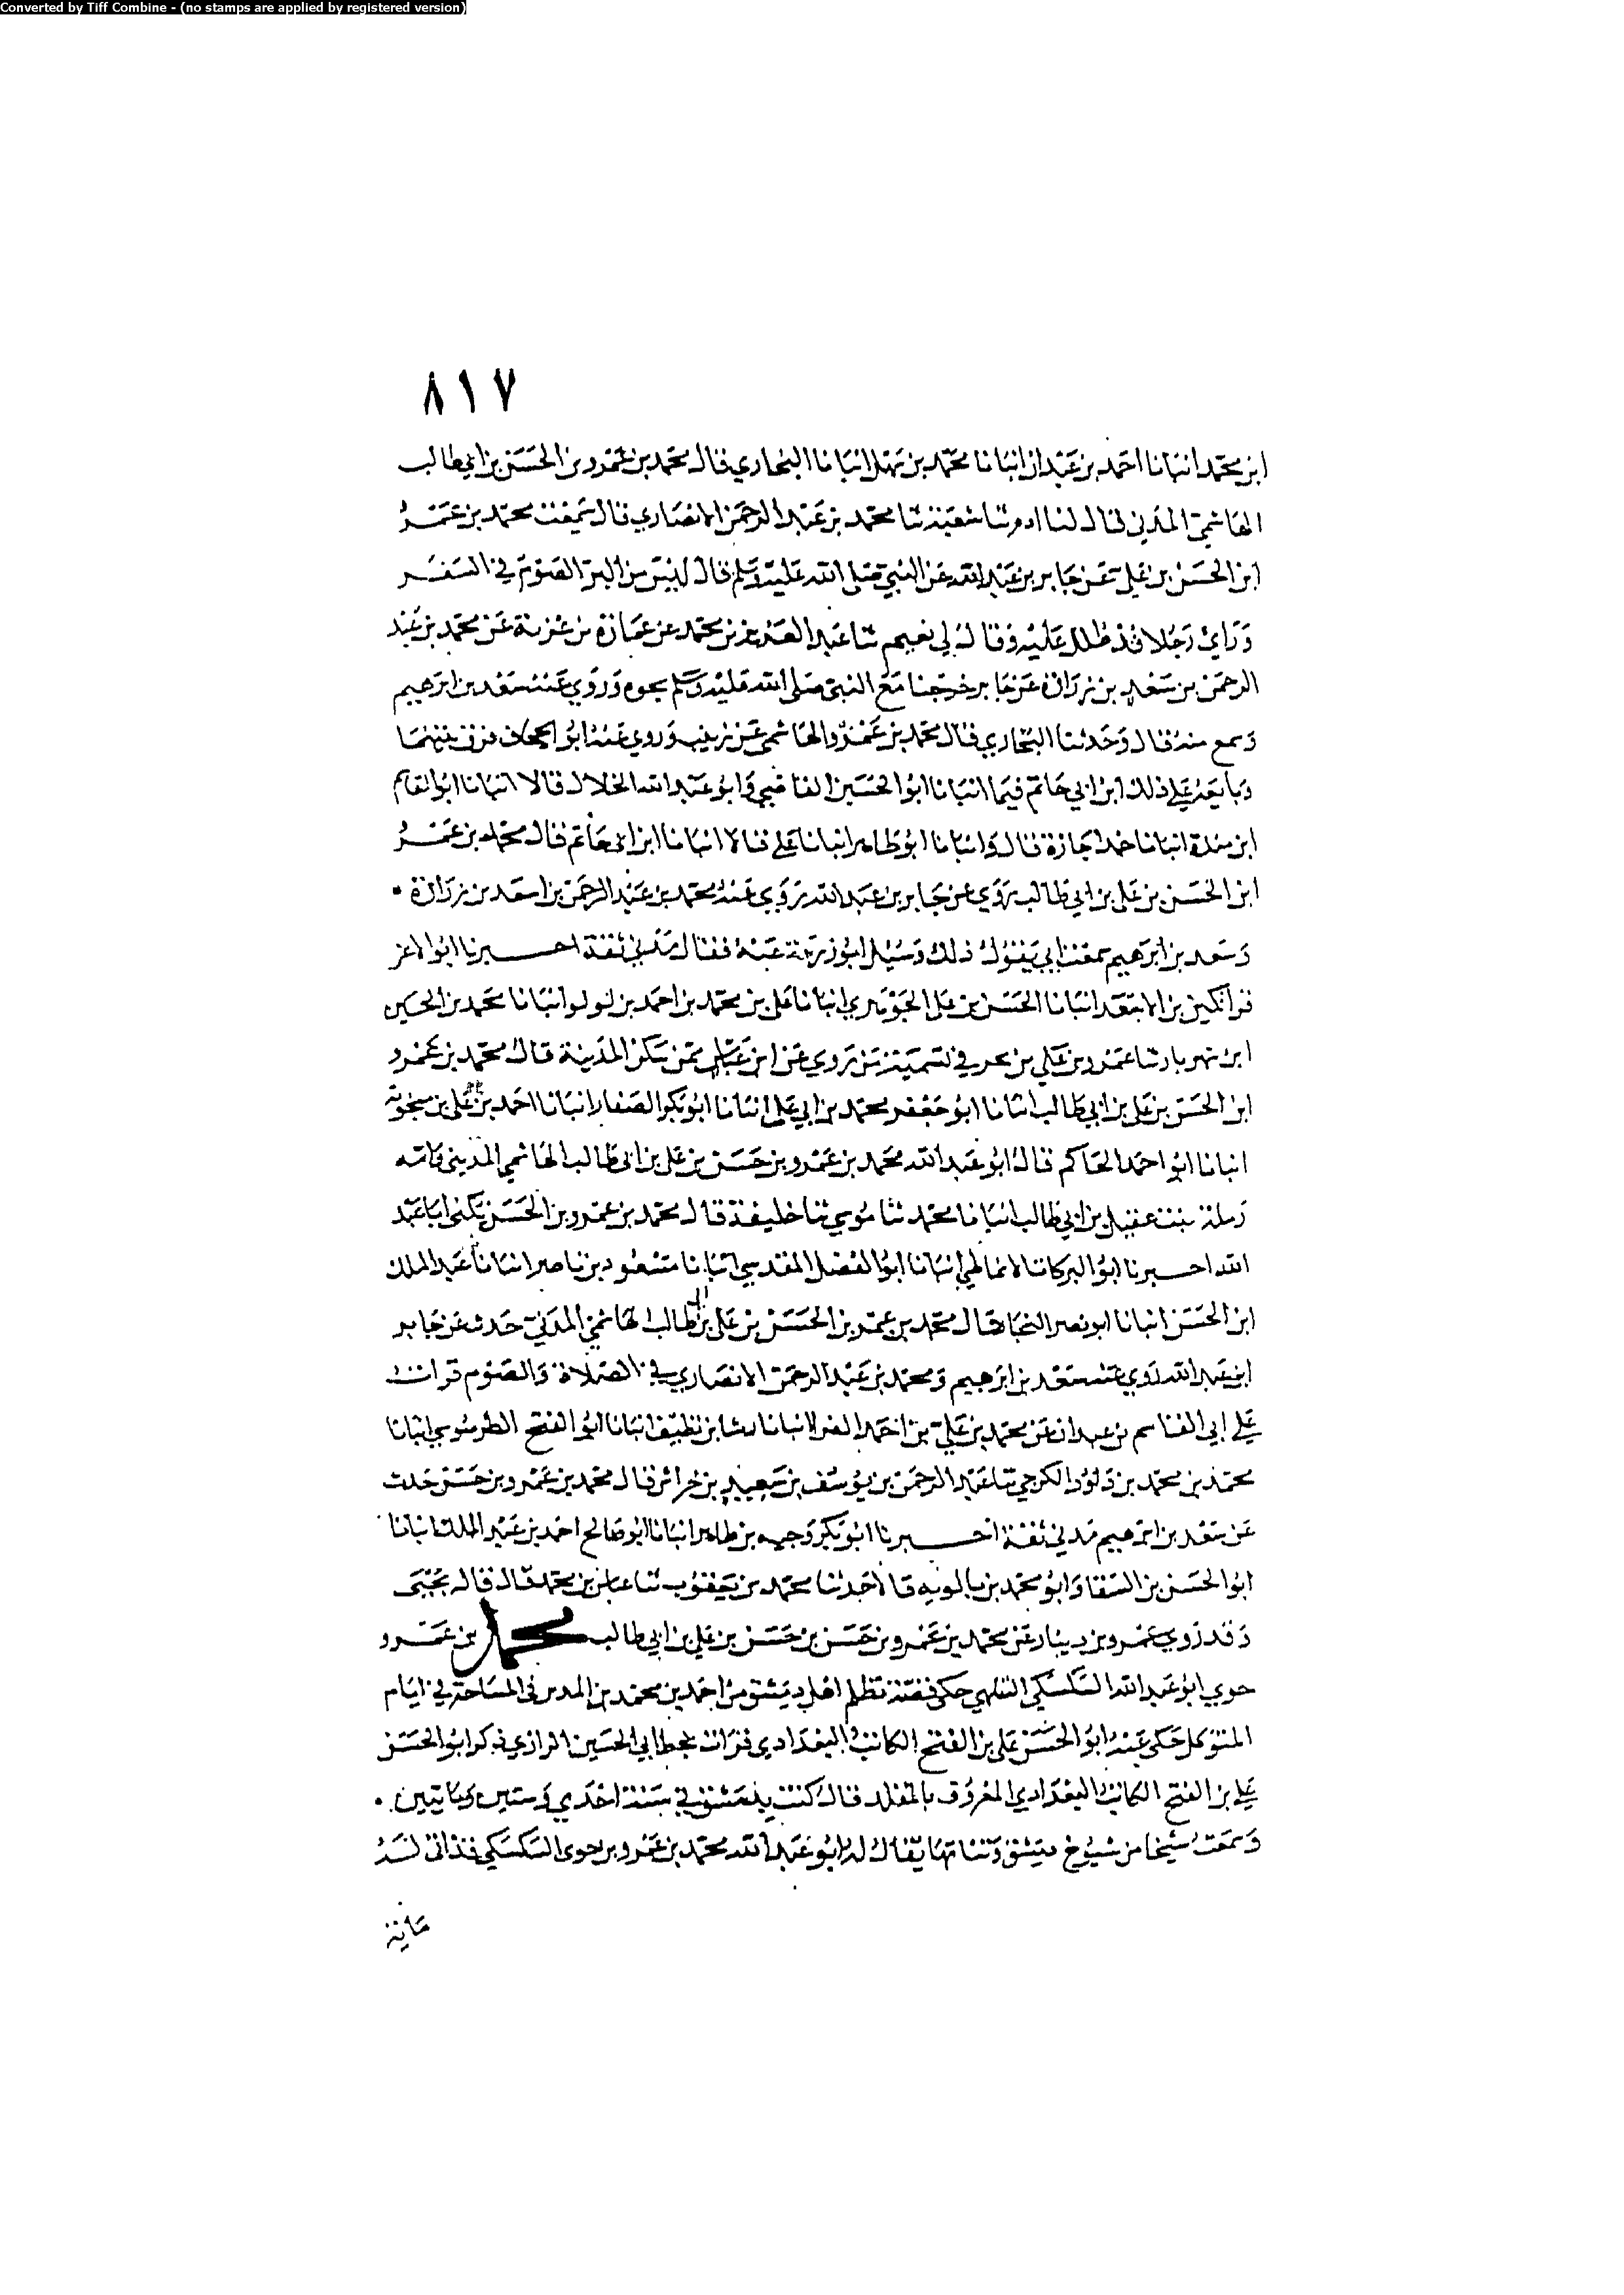 Converted by Tiff Combine - (no stamps are applied by registered version)
٨١٧
ابن محمد انبانا احمد بن عبدان انبانا محمد بن سهل انبانا البخاري قال محمد بن عمرو بن الحسن بن ابي طالب
الهاشمي المدني قال لنا ادم ثنا شعبة ثنا محمد بن عبد الرحمن الانصاري قال سمعت محمد بن عمرو
ابن الحسن بن علي عن جابر بن عبد الله عن النبي صلى الله عليه وسلم قال ليس من البر الصوم في السفر
وراي رجلا قد ظلل عليه وقال لي نعيم ثنا عبد العزيز بن محمد عن عمارة بن غزية عن محمد بن عبد
الرحمن بن سعد بن زرارة عن جابر خرجنا مع النبي صلى الله عليه وسلم نحوه وروي عنه سعد بن ابرهيم
وسمع منه قال وحدثنا البخاري قال محمد بن عمرو الهاشمي عن زينب وروي عنه ابو الجحاف فرق بينهما
وتابعه علي ذلك ابن ابي حاتم فيما انبانا ابو الحسين القاضي وابو عبد الله الخلال قالا انبانا ابو القاسم
ابن مندة انبانا حمد اجازة قال وانبانا ابو طاهر انبانا علي قالا انبانا ابن ابي حاتم قال محمد بن عمرو
ابن الحسن بن علي بن ابي طالب روي عن جابر بن عبد الله روي عنه محمد بن عبد الرحمن بن اسعد بن زرارة .
وسعد بن ابرهيم سمعت ابي يقول ذلك وسئل ابو زرعة عنه فقال مدني ثقة اخبرنا ابو الاعز
قراتكين بن الاسعد انبانا الحسن بن علي الجوهري انبانا علي بن محمد بن احمد بن لولو انبانا محمد بن الحسين
ابن شهريار ثنا عمرو بن علي بن بحر في تسمية من روي عن ابن عباس ممن سكن المدينة قال محمد بن عمرو
ابن الحسن بن علي بن ابي طالب انبانا ابو جعفر محمد بن ابي علي انبانا ابو بكر الصفار انبانا احمد بن علي بن منجويه
انبانا ابو احمد الحاكم قال ابو عبد الله محمد بن عمرو بن حسن بن علي بن ابي طالب الهاشمي المديني وامه
رملة بنت عقيل بن ابي طالب انبانا محمد ثنا موسي ثنا خليفة قال محمد بن عمرو بن الحسن يكنى ابا عبد
الله اخبرنا ابو البركات الانماطي انبانا ابو الفضل المقدسي انبانا مسعود بن ناصر انبانا عبد الملك
ابن الحسن انبانا ابو نصر البخاري قال محمد بن عمرو بن الحسن بن علي بن ابي طالب الهاشمي المدني حدث عن جابر
ابن عبد الله روي عنه سعد بن ابرهيم ومحمد بن عبد الرحمن الانصاري في الصلاة والصوم قرات
علي ابي القاسم بن عبدان عن محمد بن علي بن احمد الفرا انبانا رشا بن نظيف انبانا ابو الفتح الطرسوسي انبانا
محمد بن محمد بن داود الكرجي ثنا عبد الرحمن بن يوسف بن سعيد بن خراش قال محمد بن عمرو بن حسن حدث
عن سعد بن ابرهيم مدني ثقة اخبرنا ابو بكر وجيه بن طاهر انبانا ابو صالح احمد بن عبد الملك انبانا
ابو الحسن بن السقا وابو محمد بن بالويه قالا حدثنا محمد بن يعقوب ثنا عباس بن محمد قال قال يحيى
وقد روي عمرو بن دينار عن محمد بن عمرو بن حسن بن حسن بن علي بن ابي طالب محمد بن عمرو
حوي ابو عبد الله السكسكي حكى قصة تظلم اهل دمشق من احمد بن محمد بن المدبر في المساحة في ايام
المتوكل حكى عنه ابو الحسن علي بن الفتح الكاتب البغدادي قرات بخط ابي الحسين الرازي ذكر ابو الحسن
علي بن الفتح الكاتب البغدادي المعروف بالمقلد قال كنت بدمشق في سنة احدي وستين وماتين .
وسمعت شيخا من شيوخ دمشق وثناتها يقال له ابو عبد الله محمد بن عمرو بن حوى السكسكي قد اتى لسد
مانة